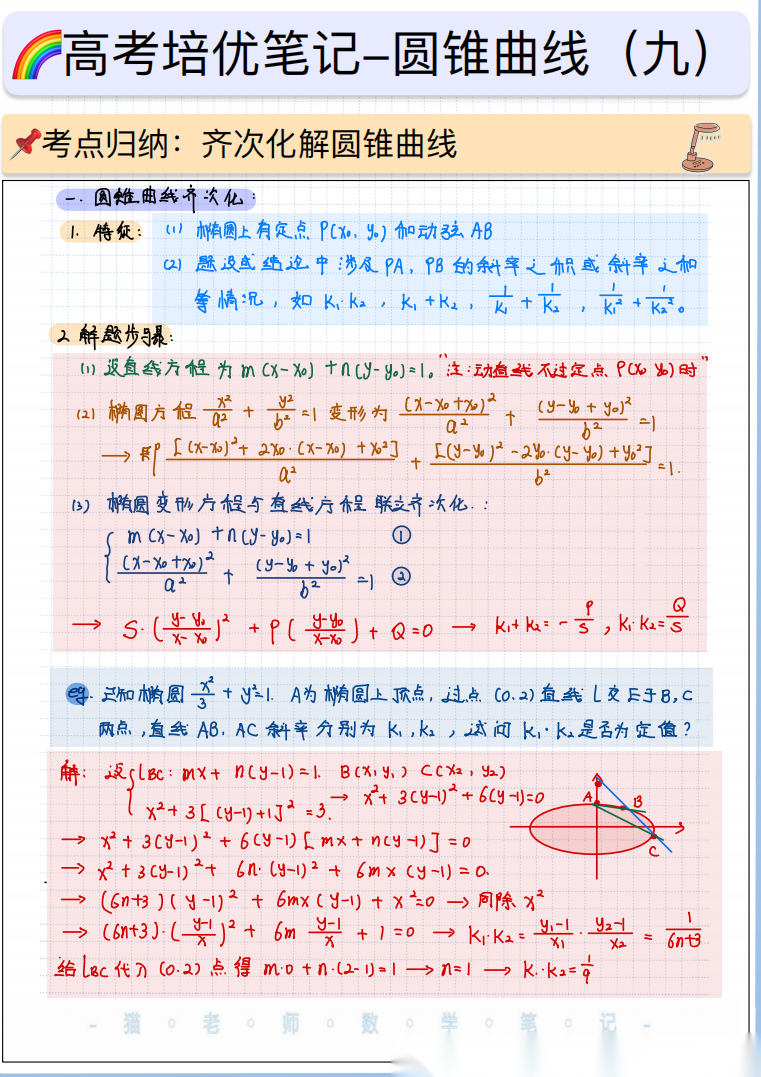 高考培优笔记-圆锥曲线（九）
考点归纳：齐次化解圆锥曲线
一. 圆锥曲线齐次化：
1. 特征：(1) 椭圆上有定点 P(x₀, y₀) 和动弦 AB
(2) 题设或结论中涉及 PA, PB 的斜率之积或斜率之和
等情况，如 k₁·k₂ , k₁+k₂ , 1/k₁ + 1/k₂ , 1/k₁² + 1/k₂² 。
2. 解题步骤：
(1) 设直线方程为 m(x-x₀)+n(y-y₀)=1。"注：动直线不过定点 P(x₀ y₀) 时"
(2) 椭圆方程 x²/a² + y²/b² =1 变形为 (x-x₀+x₀)²/a² + (y-y₀+y₀)²/b² =1
→ 即 [(x-x₀)²+2x₀·(x-x₀)+x₀²]/a² + [(y-y₀)²-2y₀·(y-y₀)+y₀²]/b² =1.
(3) 椭圆变形方程与直线方程联立齐次化.：
m(x-x₀)+n(y-y₀)=1 ①
(x-x₀+x₀)²/a² + (y-y₀+y₀)²/b² =1 ②
→ S·((y-y₀)/(x-x₀))² + P((y-y₀)/(x-x₀)) + Q=0 → k₁+k₂=-P/S , k₁·k₂=Q/S
eg. 已知椭圆 x²/3 + y²=1. A为椭圆上顶点, 过点 (0.2) 直线 L 交于 B, C
两点, 直线 AB. AC 斜率分别为 k₁, k₂ , 试问 k₁·k₂是否为定值？
解：设 { LBC: mx+n(y-1)=1. B(x₁y₁) C(x₂, y₂)
x²+3[(y-1)+1]²=3. → x²+3(y-1)²+6(y-1)=0
A B
C
→ x²+3(y-1)²+6(y-1)[mx+n(y-1)]=0
→ x²+3(y-1)²+6n·(y-1)²+6mx(y-1)=0.
→ (6n+3)(y-1)²+6mx(y-1)+x²=0 → 同除 x²
→ (6n+3)·((y-1)/x)²+6m (y-1)/x +1=0 → k₁·k₂= (y₁-1)/x₁ · (y₂-1)/x₂ = 1/(6n+3)
给 LBC 代入 (0.2) 点得 m·0+n·(2-1)=1 → n=1 → k₁·k₂=1/9
- 猫 。 老 。 师 。 数 。 学 。 笔 。 记 -